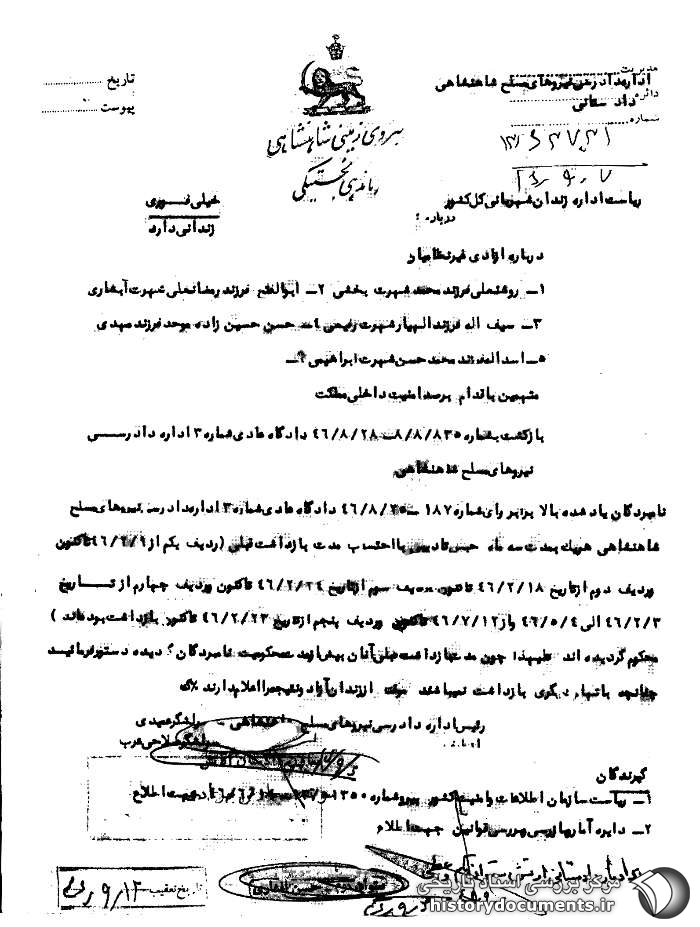 مدیریت
اداره دادرسی نیروهای مسلح شاهنشاهی
دائره
دادستانی
شماره
تاریخ
پیوست
نیروی زمینی شاهنشاهی
ریاست اداره زندان شهربانی کل کشور
درباره :
خیلی فوری
زندانی دارد
درباره آزادی غیرنظامیان
۱ـ روشنعلی فرزند محمد شهرت بخشی ۲ـ ابوالفتح فرزند رمضانعلی شهرت آبشاری
۳ـ سیف اله فرزند الهیار شهرت رفیعی ۴ـ حسن حسین زاده موحد فرزند مهدی
۵ـ اسداله فرزند محمدحسن شهرت ابراهیمی
متهمین باقدام برضد امنیت داخلی مملکت
بازگشت بشماره ۸/۸/۸۳۵ ـ ۴۶/۸/۲۸ دادگاه عادی شماره ۳ اداره دادرسی
نیروهای مسلح شاهنشاهی
نامبردگان یاد شده بالا برابر رای شماره ۱۸۷ ـ ۴۶/۸/۲۵ دادگاه عادی شماره ۳ اداره دادرسی نیروهای مسلح
شاهنشاهی هریک بمدت سه ماه حبس تادیبی بااحتساب مدت بازداشت قبلی (ردیف یکم از ۴۶/۲/۹ تاکنون
وردیف دوم ازتاریخ ۴۶/۲/۱۸ تاکنون وردیف سوم ازتاریخ ۴۶/۲/۲۴ تاکنون وردیف چهارم از تاریخ
۴۶/۲/۳ الی ۴۶/۵/۴ واز ۴۶/۷/۱۲ تاکنون وردیف پنجم ازتاریخ ۴۶/۲/۲۳ تاکنون بازداشت بوده‌اند )
محکوم گردیده اند علیهذا چون مدت بازداشت قبلی آنان بیش از مدت محکومیت نامبردگان گردیده دستور فرمائید
چنانچه باتهام دیگری بازداشت نمیباشند از زندان آزاد ونتیجه را اعلام دارند
رئیس اداره دادرسی نیروهای مسلح شاهنشاهی
گیرندگان
۱ـ ریاست سازمان اطلاعات وامنیت کشور پیرو شماره جهت اطلاع
۲ـ دایره آمار بازرسی وبررسی قوانین جهت اطلاع
تاریخ تعقیب
مرکز بررسی اسناد تاریخی
historydocuments.ir